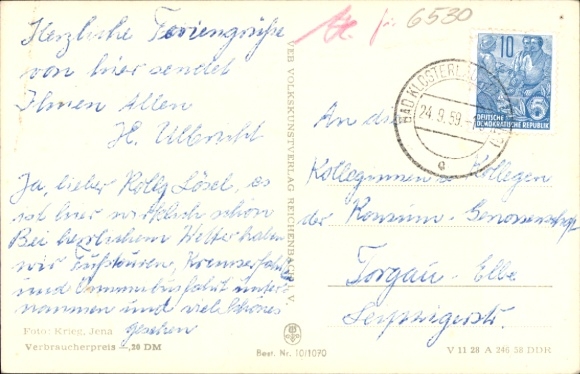 Herzliche Feriengrüße
von hier sendet
Ihnen Allen
H. Ulbricht
Ja, lieber Kollg. Lösel, es
ist hier wirklich schön
Bei herrlichem Wetter haben
wir Fußtouren, Kremserfahrt
und Omnibusfahrt unter-
nommen und viel Schönes
gesehen
Foto: Krieg, Jena
Verbraucherpreis -,20 DM
VEB VOLKSKUNSTVERLAG REICHENBACH I. V.
Best. Nr. 10/1070
für 6530
10
DEUTSCHE
DEMOKRATISCHE REPUBLIK
5
BAD KLOSTERLAUSNITZ
24.9.59
a
An die
Kolleginnen u. Kollegen
der Konsum-Genossenschaft
Torgau-Elbe
Leipzigerstr.
V 11 28 A 246 58 DDR